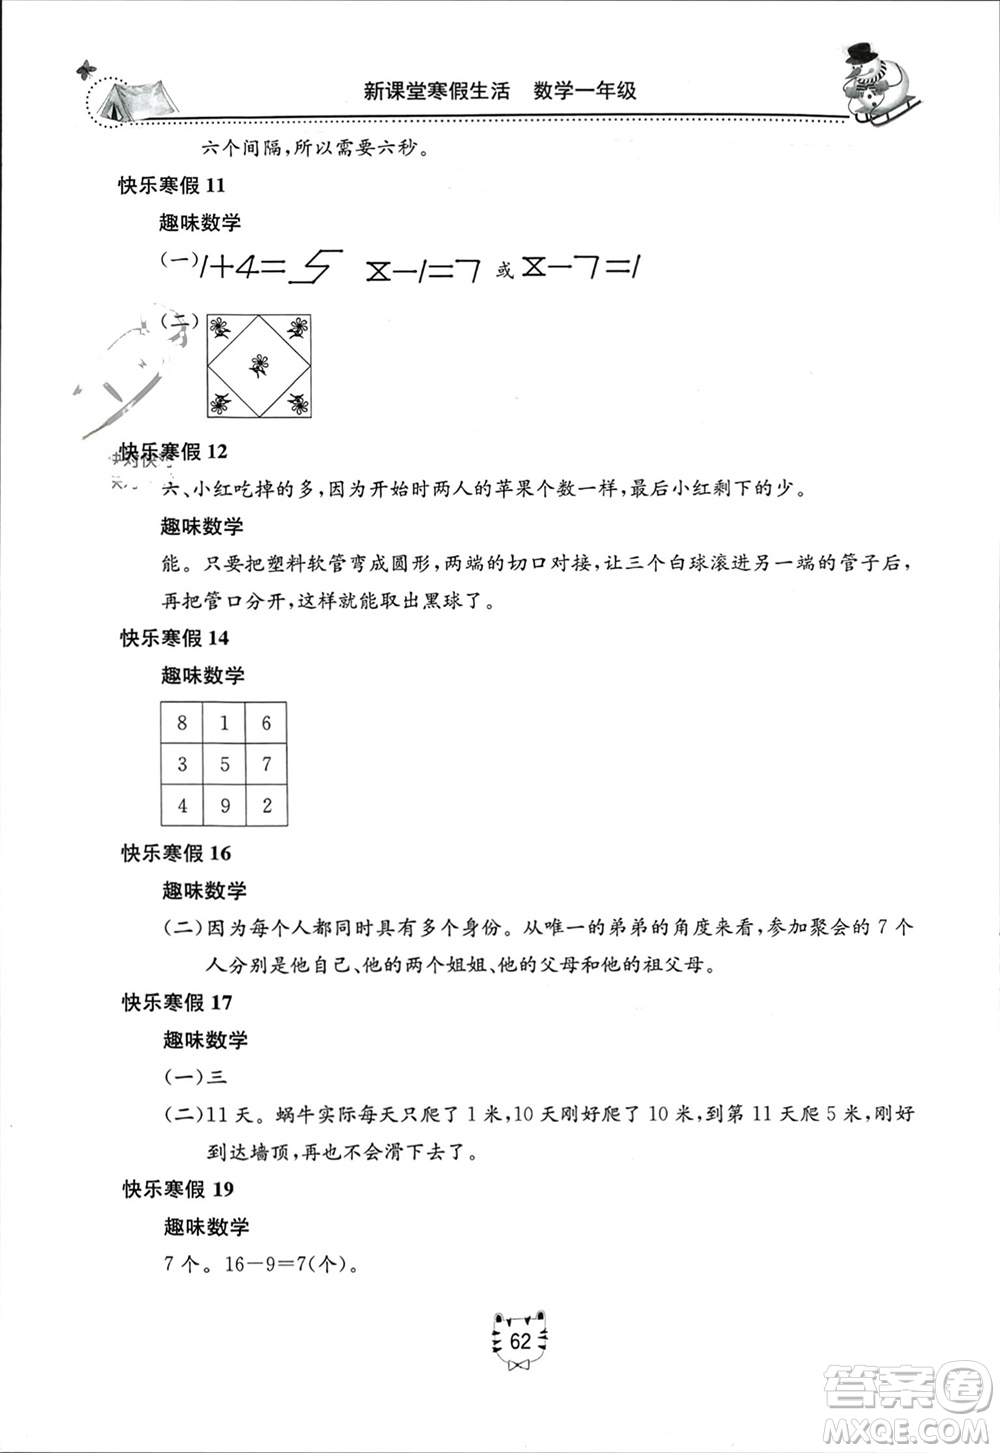 新课堂寒假生活 数学一年级
六个间隔,所以需要六秒。
快乐寒假 11
趣味数学
(一) 1+4=5 8-1=7 或 8-7=1
(二)
快乐寒假 12
六、小红吃掉的多,因为开始时两人的苹果个数一样,最后小红剩下的少。
趣味数学
能。只要把塑料软管弯成圆形,两端的切口对接,让三个白球滚进另一端的管子后,
再把管口分开,这样就能取出黑球了。
快乐寒假 14
趣味数学
8 1 6
3 5 7
4 9 2
快乐寒假 16
趣味数学
(二)因为每个人都同时具有多个身份。从唯一的弟弟的角度来看,参加聚会的 7 个
人分别是他自己、他的两个姐姐、他的父母和他的祖父母。
快乐寒假 17
趣味数学
(一)三
(二)11 天。蜗牛实际每天只爬了 1 米,10 天刚好爬了 10 米,到第 11 天爬 5 米,刚好
到达墙顶,再也不会滑下去了。
快乐寒假 19
趣味数学
7 个。16-9=7(个)。
62
答案卷
MXQE.COM